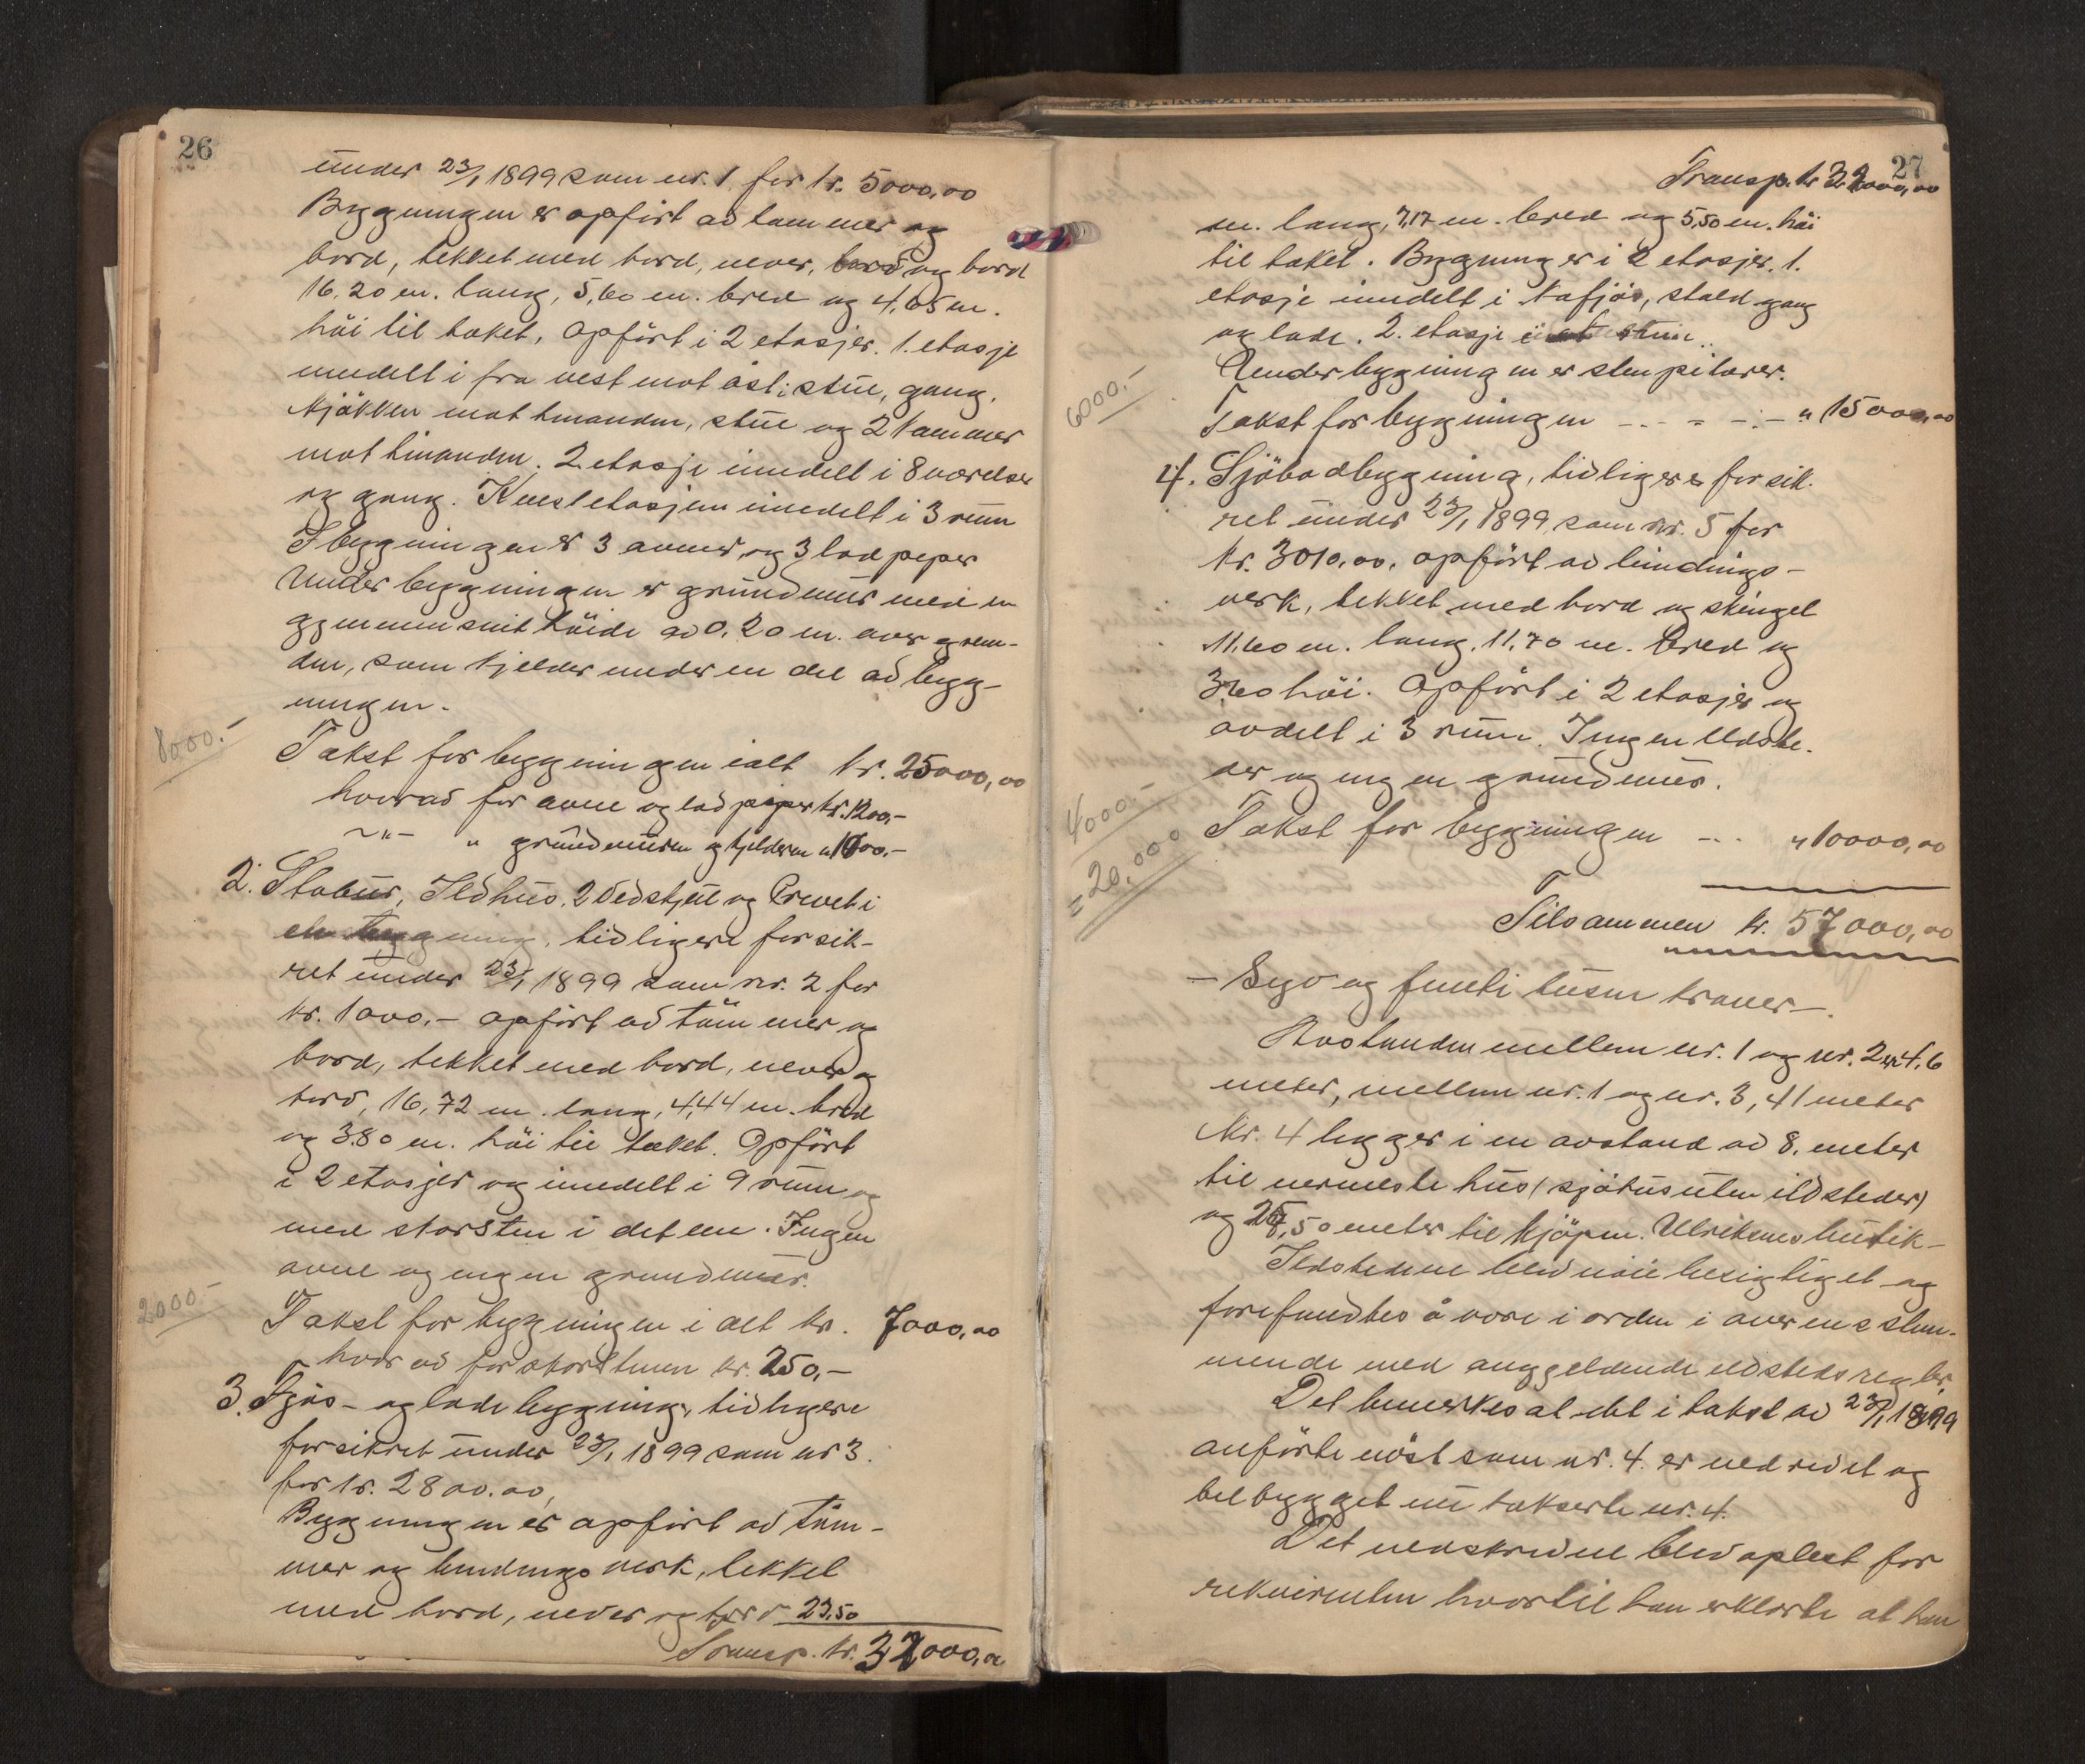 26
under 23/1 1899 som nr. 1 for kr. 5000,00
Bygningen er opført av tømmer og
bord, tekket med bord, never, torv og bord
16.20 m. lang, 5,60 m. bred og 4,65 m.
høi til taket, opført i 2 etasjer. 1. etasje
inndelt i fra vest mot øst: stue, gang,
kjøkken mot hinanden, stue og 2 kammer
mot hinanden. 2. etasje inndelt i 8 værelser
og gang. Kvistetasjen inndelt i 3 rum
I bygningen er 3 ovner, og 3 lodpiper
Under bygningen er grundmur med en
gjennemsnit høide av 0.20 m. over grun-
den, samt kjelder under en del av byg-
ningen.
8000.-
Takst for bygningen ialt kr. 25000,00
hvorav for ovne og lodpiper kr. 1200,-
-"- " grundmuren og kjelderen " 1600.-
2. Stabur, Ildhus, 2 Vedskjul og Privet i
en bygning, tidligere forsik-
ret under 23/1 1899 som nr. 2 for
kr. 1000.- opført av tømmer og
bord, tekket med bord, never og
torv, 16,72 m. lang, 4,44 m. bred
og 3.80 m. høi til taket. Opført
i 2 etasjer og inndelt i 9 rum og
med skorsten i det ene. Ingen
ovne og ingen grundmur.
2000.-
Takst for bygningen i alt kr. 7000,00
hvorav for skorstenen kr. 250,-
3. Fjøs- og ladebygning, tidligere
forsikret under 23/1 1899 som nr 3.
for kr. 2800.00,
Bygningen er opført av tøm-
mer og bindingsverk, tekket
med bord, never og torv 23,50
Transp. kr. 32000,00
27
Transp. kr 32000,00
m. lang, 7,17 m. bred og 5,50 m. høi
til taket. Bygning er i 2 etasjer, 1.
etasje inndelt i kufjøs, stald gang
og lade. 2. etasje i et rum.
Under bygningen er stenpilarer.
6000.-
Takst for bygningen - . - " - . - " 15000,00
4. Sjøbodbygning, tidligere forsik-
ret under 23/1 1899 som nr. 5 for
kr. 3010,00, opført av bindings-
verk, tekket med bord og skingel
11,60 m. lang, 11,70 m. bred og
3,60 høi. Opført i 2 etasjer og
avdelt i 3 rum. Ingen Ildste-
der og ingen grundmur.
4000.-
Takst for bygningen - . . " 10000,00
= 20,000
Tilsammen kr. 57000,00
- Syv og femti tusen kroner -.
Avstanden mellem nr. 1 og nr. 2 er 4.6
meter, mellem nr. 1 og nr. 3, 41 meter
Nr. 4 ligger i en avstand av 8. meter
til nermeste hus (sjøhus uten ildsteder)
og 27,50 meter til kjøpm. Ulriksens butik-
Ildstedene blev nøie besigtiget og
forefundtes å være i orden i overensstem-
mende med angjeldende ildstedsregler,
Det bemerkes at det i takst av 23/1 1899
anførte nøst som nr. 4. er nedrevet og
bebygget nu takserte nr. 4.
Det nedskrevne blev oplest for
rekvirenten hvortil han erklærte at han